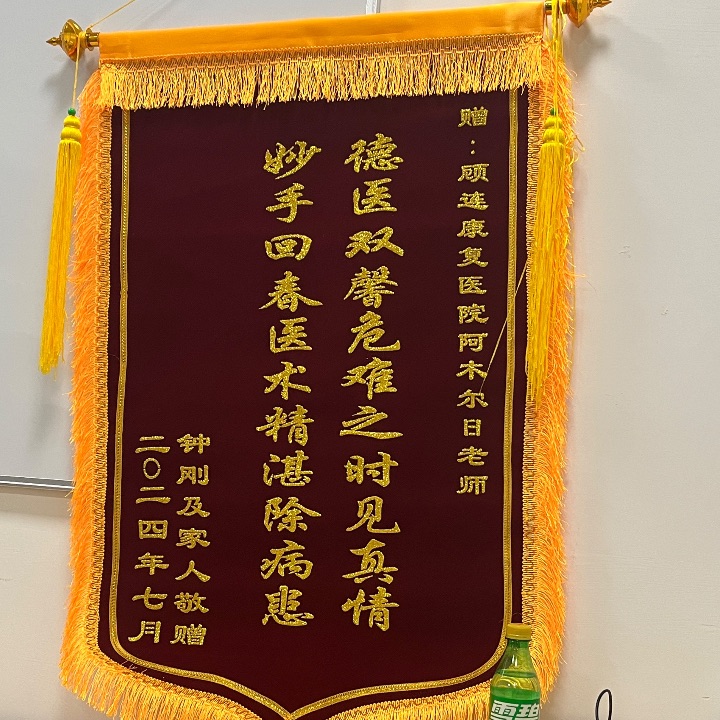 赠：顾连康复医院阿木尔日老师
德医双馨危难之时见真情
妙手回春医术精湛除病患
钟刚及家人敬赠
二〇二四年七月
雪碧